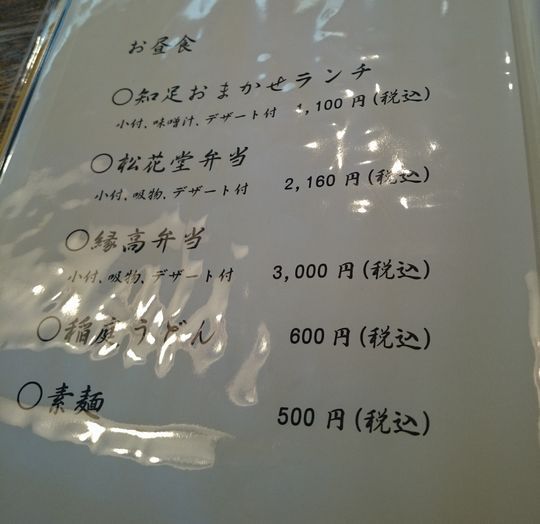 お昼食
○知足おまかせランチ 1,100 円(税込)
小付、味噌汁、デザート付
○松花堂弁当 2,160 円(税込)
小付、吸物、デザート付
○縁高弁当 3,000 円(税込)
小付、吸物、デザート付
○稲庭うどん 600 円(税込)
○素麺 500 円(税込)